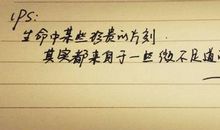 ps:
生命中某些珍贵的片刻
其实都来自于一些微不足道